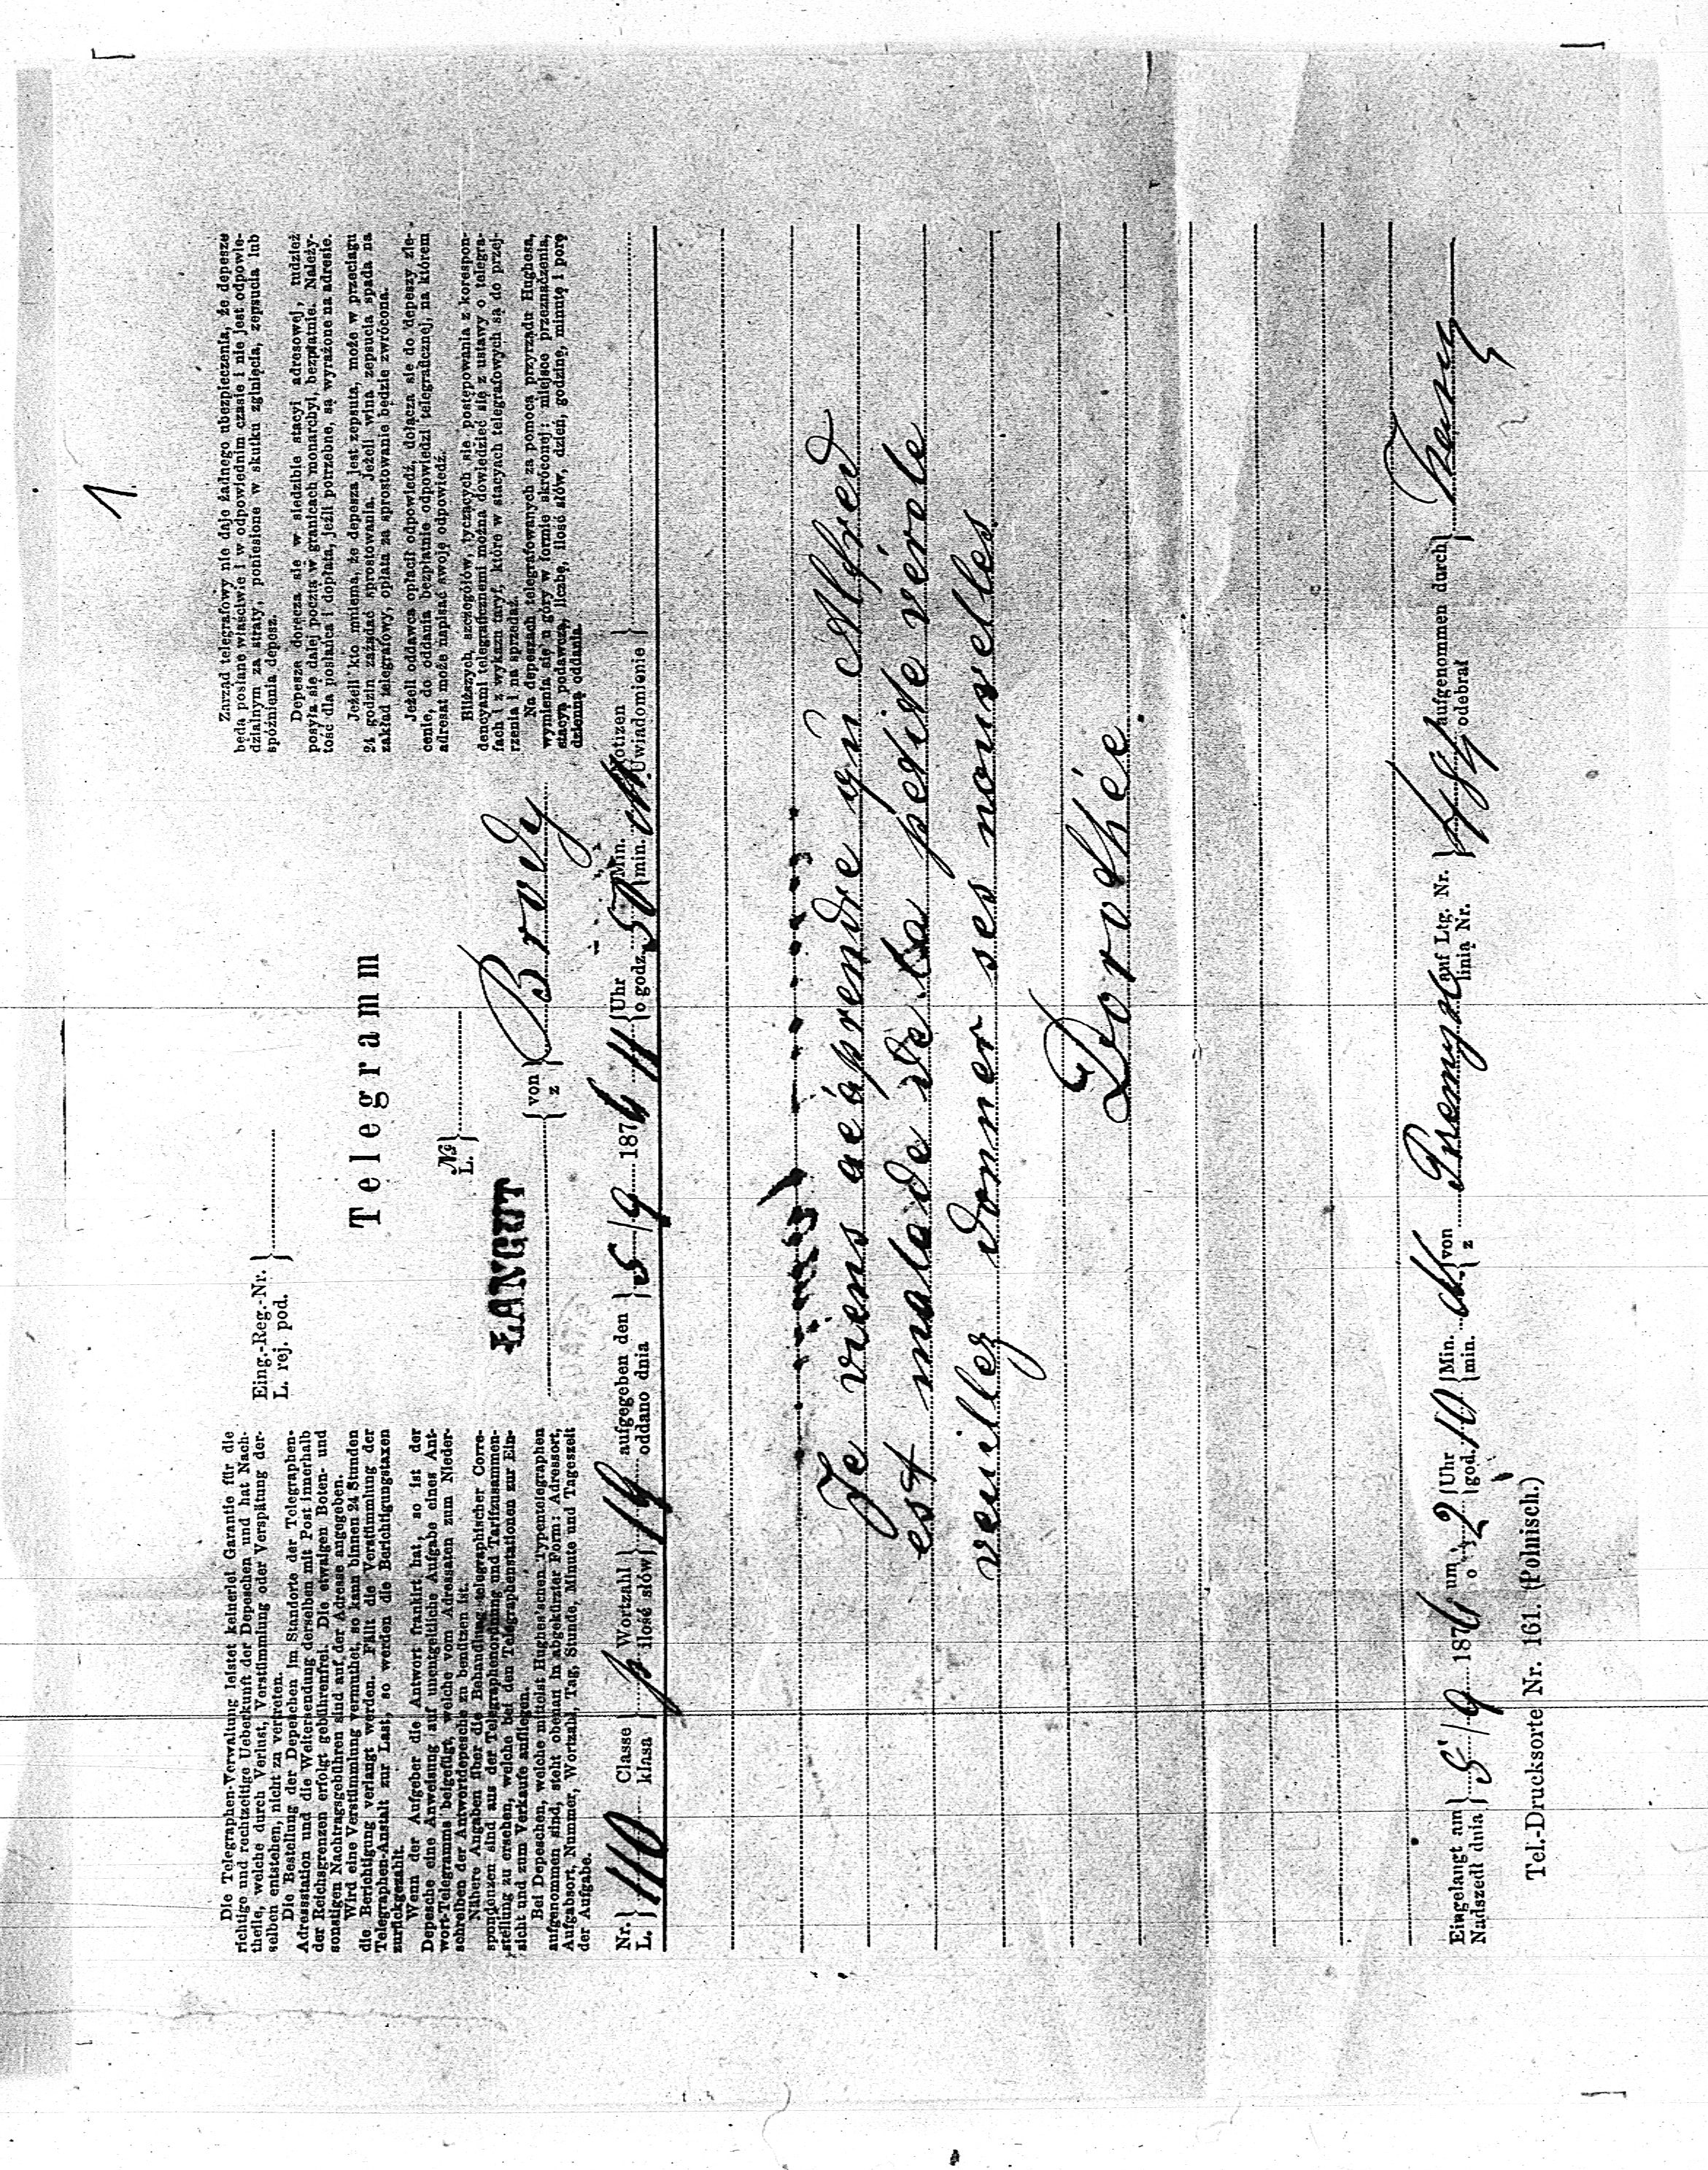 1.
Die Telegraphen-Verwaltung leistet keinerlei Garantie für die
richtige und rechtzeitige Ueberkunft der Depeschen und hat Nach-
theile, welche durch Verlust, Verstümmlung oder Verspätung der-
selben entstehen, nicht zu vertreten.
Die Bestellung der Depeschen im Standorte der Telegraphen-
Adressstation und die Weitersendung derselben mit Post innerhalb
der Reichsgrenzen erfolgt gebührenfrei. Die etwaigen Boten- und
sonstigen Nachtragsgebühren sind auf der Adresse angegeben.
Wird eine Verstümmlung vermuthet, so kann binnen 24 Stunden
die Berichtigung verlangt werden. Fällt die Verstümmlung der
Telegraphen-Anstalt zur Last, so werden die Berichtigungstaxen
zurückgezahlt.
Wenn der Aufgeber die Antwort frankirt hat, so ist der
Depesche eine Anweisung auf unentgeltliche Aufgabe eines Ant-
wort-Telegramms beigefügt, welche vom Adressaten zum Nieder-
schreiben der Antwortdepesche zu benützen ist.
Nähere Angaben über die Behandlung telegraphischer Corre-
spondenzen sind aus der Telegraphenordnung und Tarifzusammen-
stellung zu ersehen, welche bei den Telegraphenstationen zur Ein-
sicht und zum Verkaufe aufliegen.
Bei Depeschen, welche mittelst Hughes'schen Typentelegraphen
aufgenommen sind, steht obenan in abgekürzter Form: Adressort,
Aufgabsort, Nummer, Wortzahl, Tag, Stunde, Minute und Tageszeit
der Aufgabe.
Eing.-Reg.-Nr.
L. rej. pod.
Telegramm
№
L.
ŁAŃCUT von z Brody
Zarząd telegrafowy nie daje żadnego ubezpieczenia, że depesze
będą posłane właściwie i w odpowiednim czasie i nie jest odpowie-
dzialnym za straty, poniesione w skutku zginięcia, zepsucia lub
spóźnienia depesz.
Depesze doręcza się w siedzibie stacyi adresowej, tudzież
posyła się dalej pocztą w granicach monarchyi, bezpłatnie. Należy-
tość dla posłańca i dopłata, jeźli potrzebne, są wyrażone na adresie.
Jeżeli kto mniema, że depesza jest zepsuta, może w przeciągu
24 godzin zażądać sprostowania. Jeżeli wina zepsucia spada na
zakład telegrafowy, opłata za sprostowanie będzie zwrócona.
Jeżeli oddawca opłacił odpowiedź, dołącza się do depeszy zle-
cenie, do oddania bezpłatnie odpowiedzi telegraficznej, na którem
adresat może napisać swoję odpowiedź.
Bliższych szczegółów, tyczących się postępowania z korespon-
dencyami telegraficznemi można dowiedzieć się z ustawy o telegra-
fach i z wykazu taryf, które w stacyach telegrafowych są do przej-
rzenia i na sprzedaż.
Na depeszach telegrafowanych za pomocą przyrządu Hughesa,
wymienia się u góry w formie skróconej: miejsce przeznaczenia,
stacyą podawczą, liczbę, ilość słów, dzień, godzinę, minutę i porę
dzienną oddania.
Nr. L. 110 Classe klasa p Wortzahl ilość słów 19 aufgegeben den oddano dnia 5/9 1876 11 Uhr o godz. 50 Min. min. Notizen Uwiadomienie
Je viens d'apprendre qu'Alfred
est malade de la petite vérole
veuillez donner ses nouvelles
Dorothée
Eingelangt am Nadszedł dnia 5/9 1876 um o 2 Uhr god. 10 Min. min. von z Przemysl auf Ltg. Nr. linia Nr. aufgenommen durch odebrał
Tel.-Drucksorte Nr. 161. (Polnisch.)